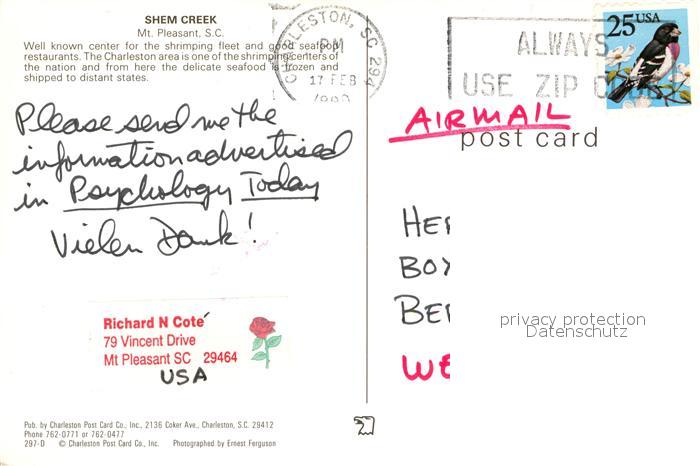 SHEM CREEK
Mt. Pleasant, S.C.
Well known center for the shrimping fleet and good seafood
restaurants. The Charleston area is one of the shrimping centers of
the nation and from here the delicate seafood is frozen and
shipped to distant states.
CHARLESTON, SC 294
PM
17 FEB
ALWAYS
USE ZIP
25 USA
AIRMAIL
post card
Please send me the
information advertised
in Psychology Today
Vielen Dank!
Richard N Coté
79 Vincent Drive
Mt Pleasant SC 29464
USA
HE
BO
BE
WE
privacy protection
Datenschutz
Pub. by Charleston Post Card Co., Inc., 2136 Coker Ave., Charleston, S.C. 29412
Phone 762-0771 or 762-0477
297-D © Charleston Post Card Co., Inc. Photographed by Ernest Ferguson